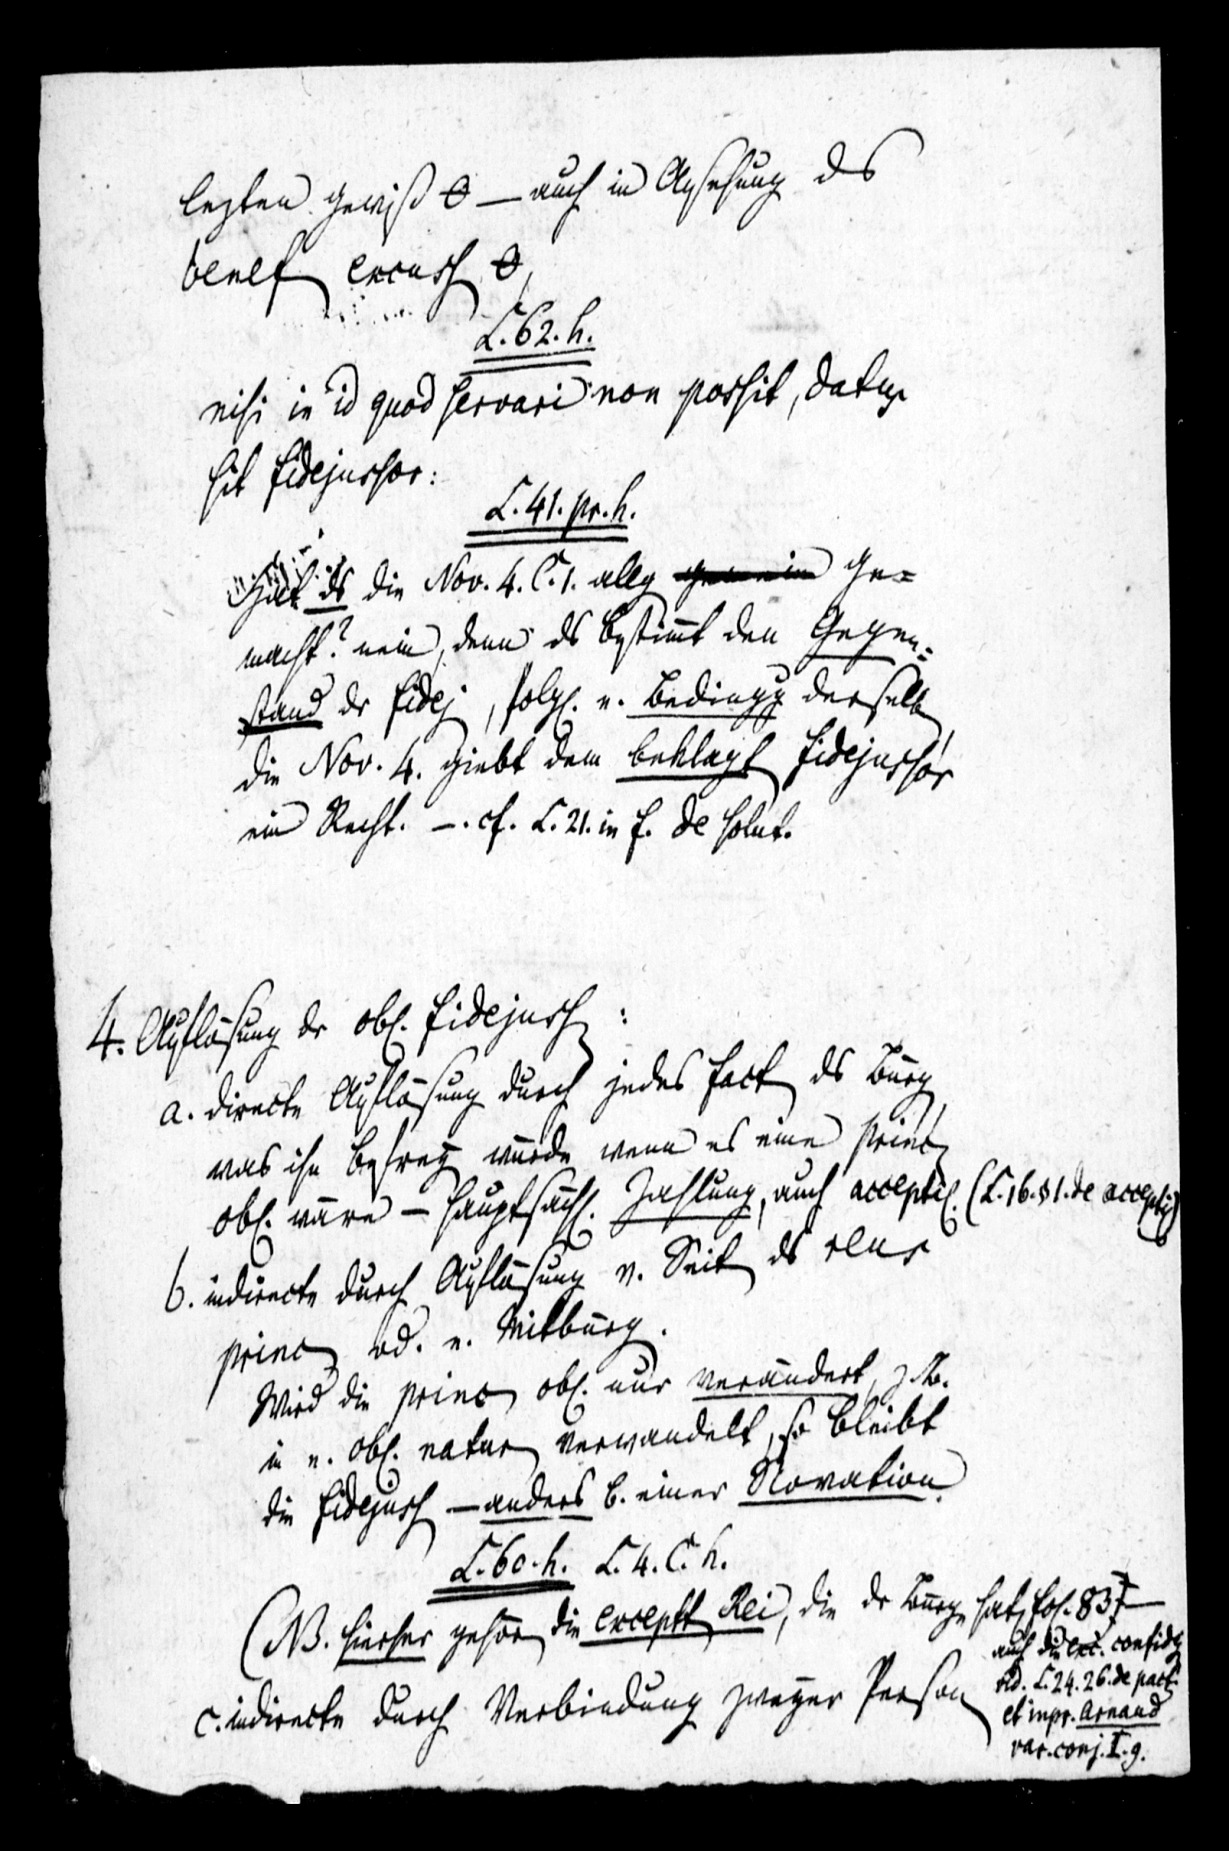 letzten gewiß θ — auch in Ansehung ds
benef excuss θ,
L. 62. h.
nisi in id quod servari non possit, datus
sit fidejussor:
L. 41. pr. h.
Hat ds die Nov. 4. C. 1. allg gemein ge=
macht? nein, denn ds bestimt den Gegen=
stand dr fidej, folgl. e. Bedingg derselb,
die Nov. 4. giebt dem beklagt fidejussor
ein Recht. —. cf. L. 21. in f. de solut.
4. Auflösung dr obl. fidejuss:
a. directe Auflösung durch jedes fact ds Bürg,
was ihn befrey würde wenn es eine princ
obl. wäre — hauptsächl. Zahlung, auch acceptil. (L. 16. §1. de acceptil)
b. indirecte durch Auflösung v. Seit ds reus
princ od. e. Mitbürg.
Wird die princ obl. nur verändert, z. B.
in e. obl. natur verwandelt, so bleibt
die fidejuss — anders b. einer Novation.
L. 60. h. L. 4. C. h.
(NB. hierher gehör die exceptt Rei, die dr Bürge hat, fol. 83
auch die exc. confidej
vid. L. 24. 26. de pact.
et inpr. Arnaud
var. conj. I. 9.
c. indirecte durch Verbindung zweyer Person